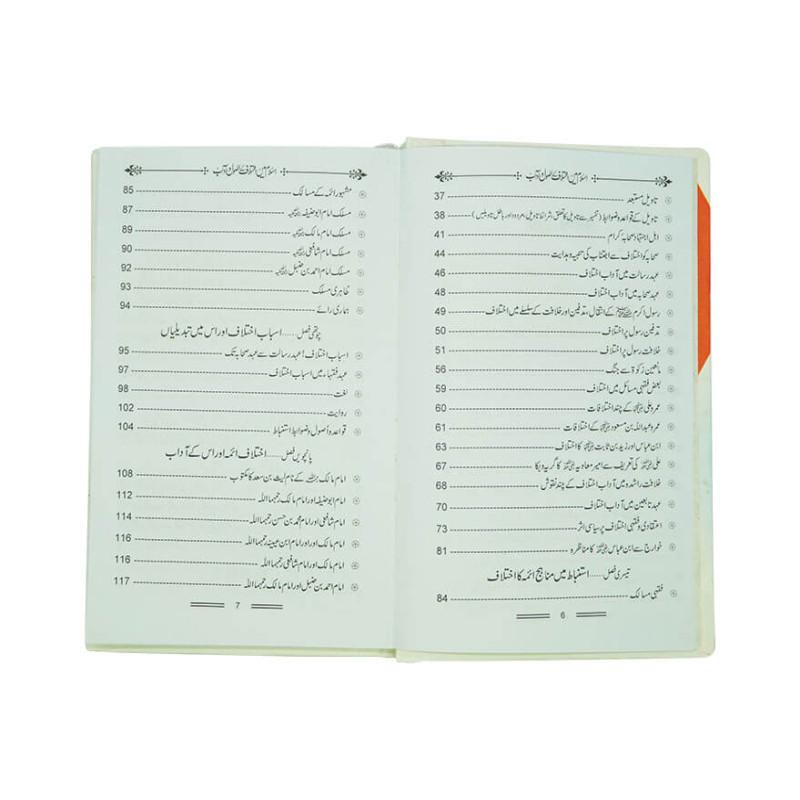 اسلام میں اختلاف کے اصول و آداب
تاویل مستبعد 37
تاویل کے قواعد و ضوابط (تفسیر سے تاویل کا تعلق، شرائط تاویل، مردود اور باطل تاویلیں) 38
اہل اجتہاد صحابہ کرام 41
صحابہ کو اختلاف سے اجتناب کی تنبیہ و ہدایت 44
عہد رسالت میں آداب اختلاف 46
عہد صحابہ میں آداب اختلاف 48
رسول اکرم ﷺ کے انتقال، تدفین اور خلافت کے سلسلے میں اختلاف 49
تدفین رسول پر اختلاف 50
خلافت رسول پر اختلاف 51
مانعین زکوٰۃ سے جنگ 56
بعض فقہی مسائل میں اختلاف 59
عمر و علی کے چند اختلافات 60
عمر و عبداللہ بن مسعود کے اختلافات 61
ابن عباس اور زید بن ثابت کا اختلاف 63
علی کی تعریف سے امیر معاویہ کا گریہ و بکا 67
خلافت راشدہ میں آداب اختلاف کے چند نقوش 68
عہد تابعین میں آداب اختلاف 70
اعتقادی و فقہی اختلاف پر سیاسی اثر 73
خوارج سے ابن عباس کا مناظرہ 81
تیسری فصل ..... استنباط میں مناہج ائمہ کا اختلاف
فقہی مسالک 84
6
اسلام میں اختلاف کے اصول و آداب
مشہور ائمہ کے مسالک 85
مسلک امام ابوحنیفہ 87
مسلک امام مالک 89
مسلک امام شافعی 90
مسلک امام احمد بن حنبل 92
ظاہری مسلک 93
ہماری رائے 94
چوتھی فصل ..... اسباب اختلاف اور اس میں تبدیلیاں
اسباب اختلاف! عہد رسالت سے عہد صحابہ تک 95
عہد فقہاء میں اسباب اختلاف 97
لغت 98
روایت 102
قواعد و اصول و ضوابط استنباط 104
پانچویں فصل ..... اختلاف ائمہ اور اس کے آداب
امام مالک کے نام لیث بن سعد کا مکتوب 108
ابوحنیفہ اور امام مالک رحمہما اللہ 112
امام شافعی اور امام محمد بن حسن رحمہما اللہ 114
امام مالک اور امام ابن عیینہ رحمہما اللہ 116
امام مالک اور امام شافعی رحمہما اللہ 116
امام احمد بن حنبل اور امام مالک رحمہما اللہ 117
7